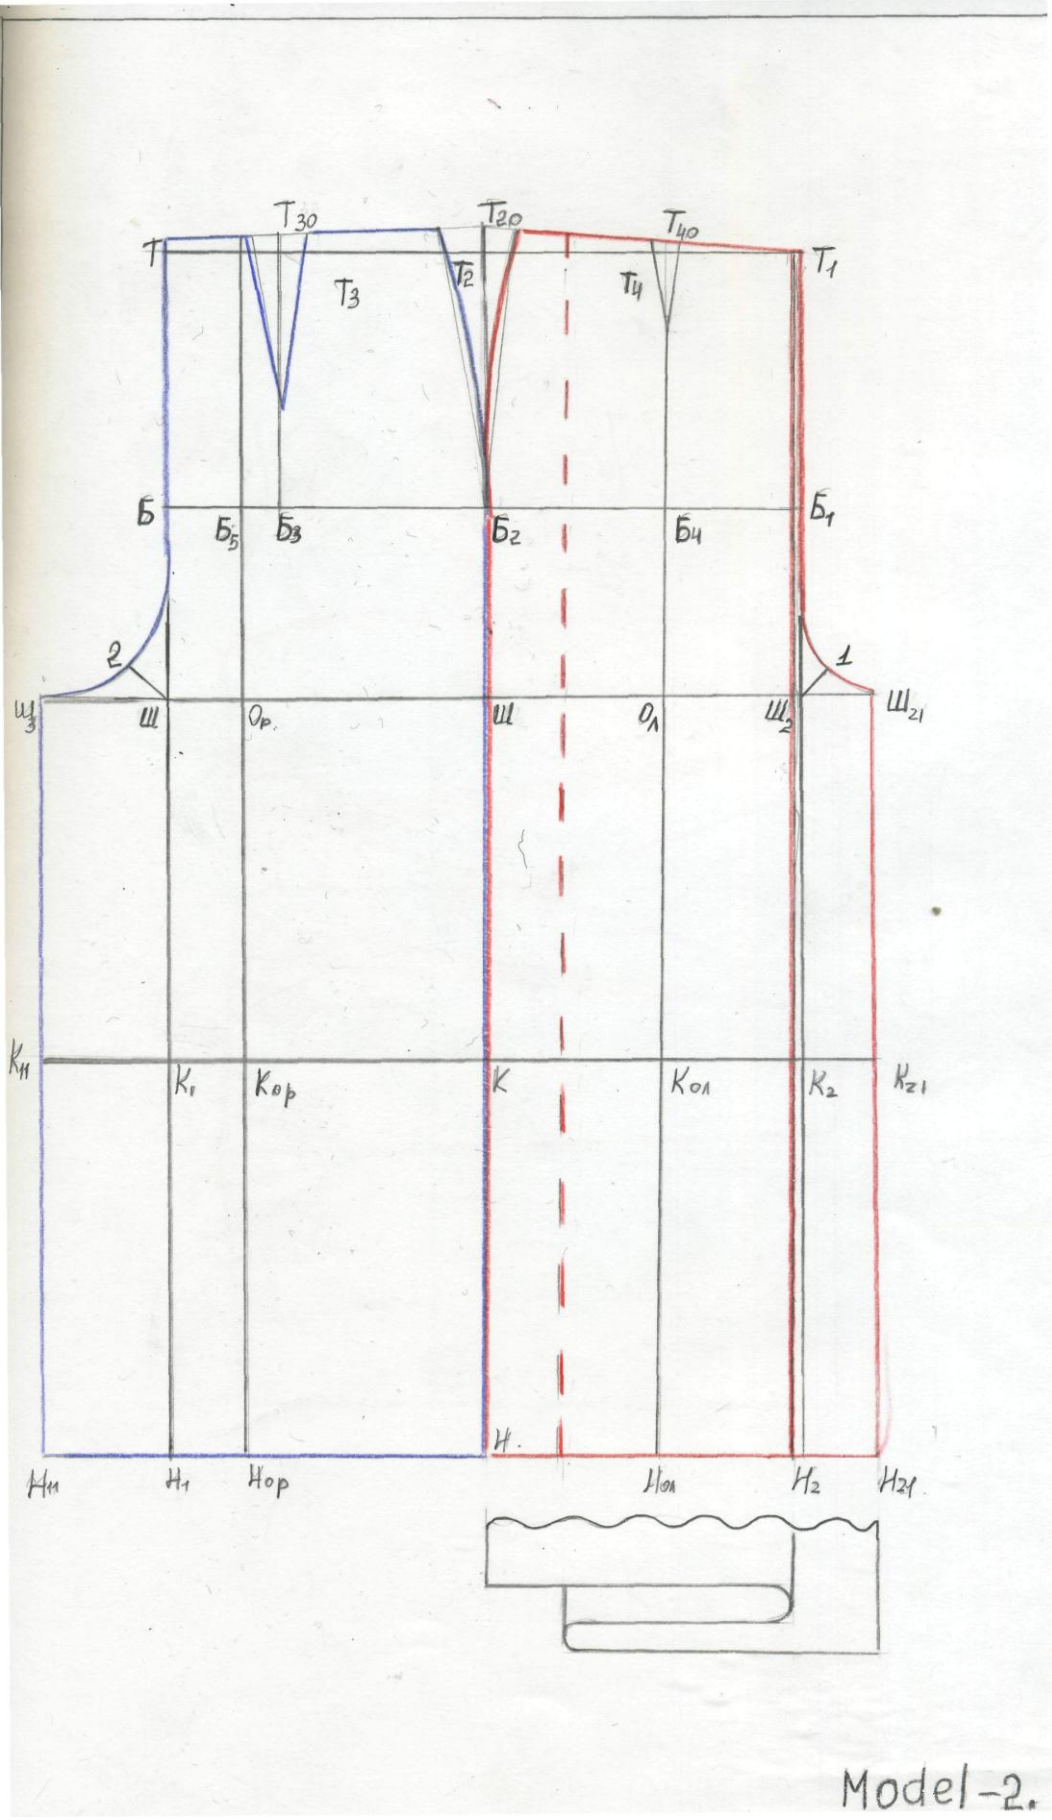 Т30 Т20 Т40
Т Т2 Т1
Т3 Т4
Б Б5 Б3 Б2 Б4 Б1
2 1
Ш3 Ш Ор Ш Ол Ш2 Ш21
К11 К1 Кор К Кол К2 К21
Н.
Н11 Н1 Нор Нол Н2 Н21.
Model-2.